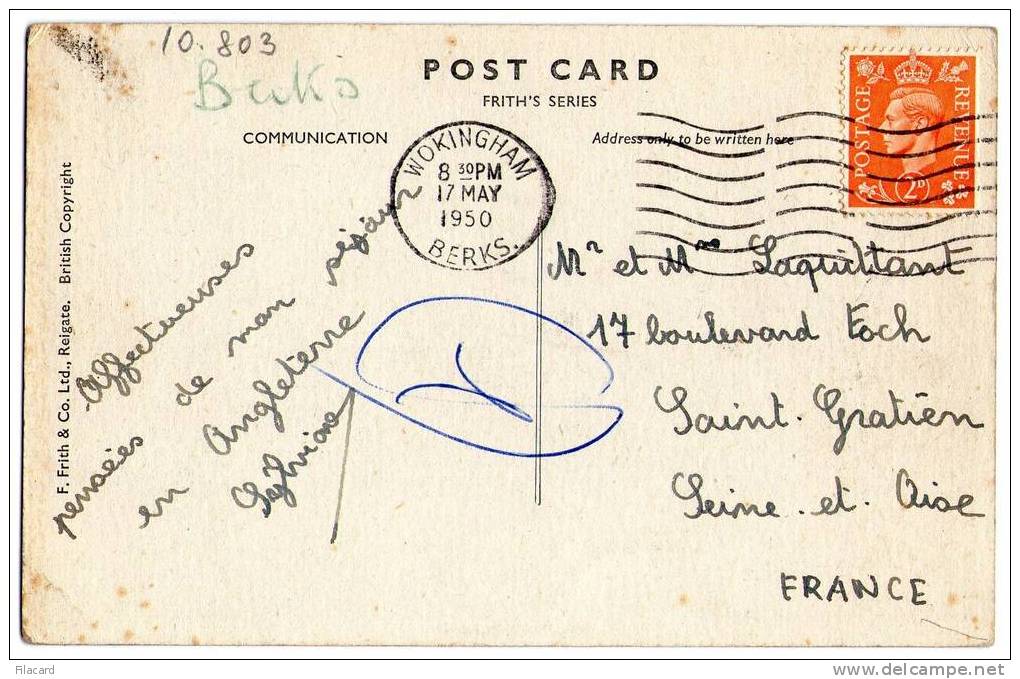 10.803
Berks
POST CARD
FRITH'S SERIES
COMMUNICATION
Address only to be written here
WOKINGHAM
8 30PM
17 MAY
1950
BERKS.
POSTAGE
REVENUE
2D
F. Frith & Co. Ltd., Reigate. British Copyright
Affectueuses
pensées de mon séjour
en Angleterre
Sylviane
Mr et Mme Laquittant
17 boulevard Foch
Saint. Gratien
Seine. et. Oise
FRANCE
Filacard
www.delcampe.net